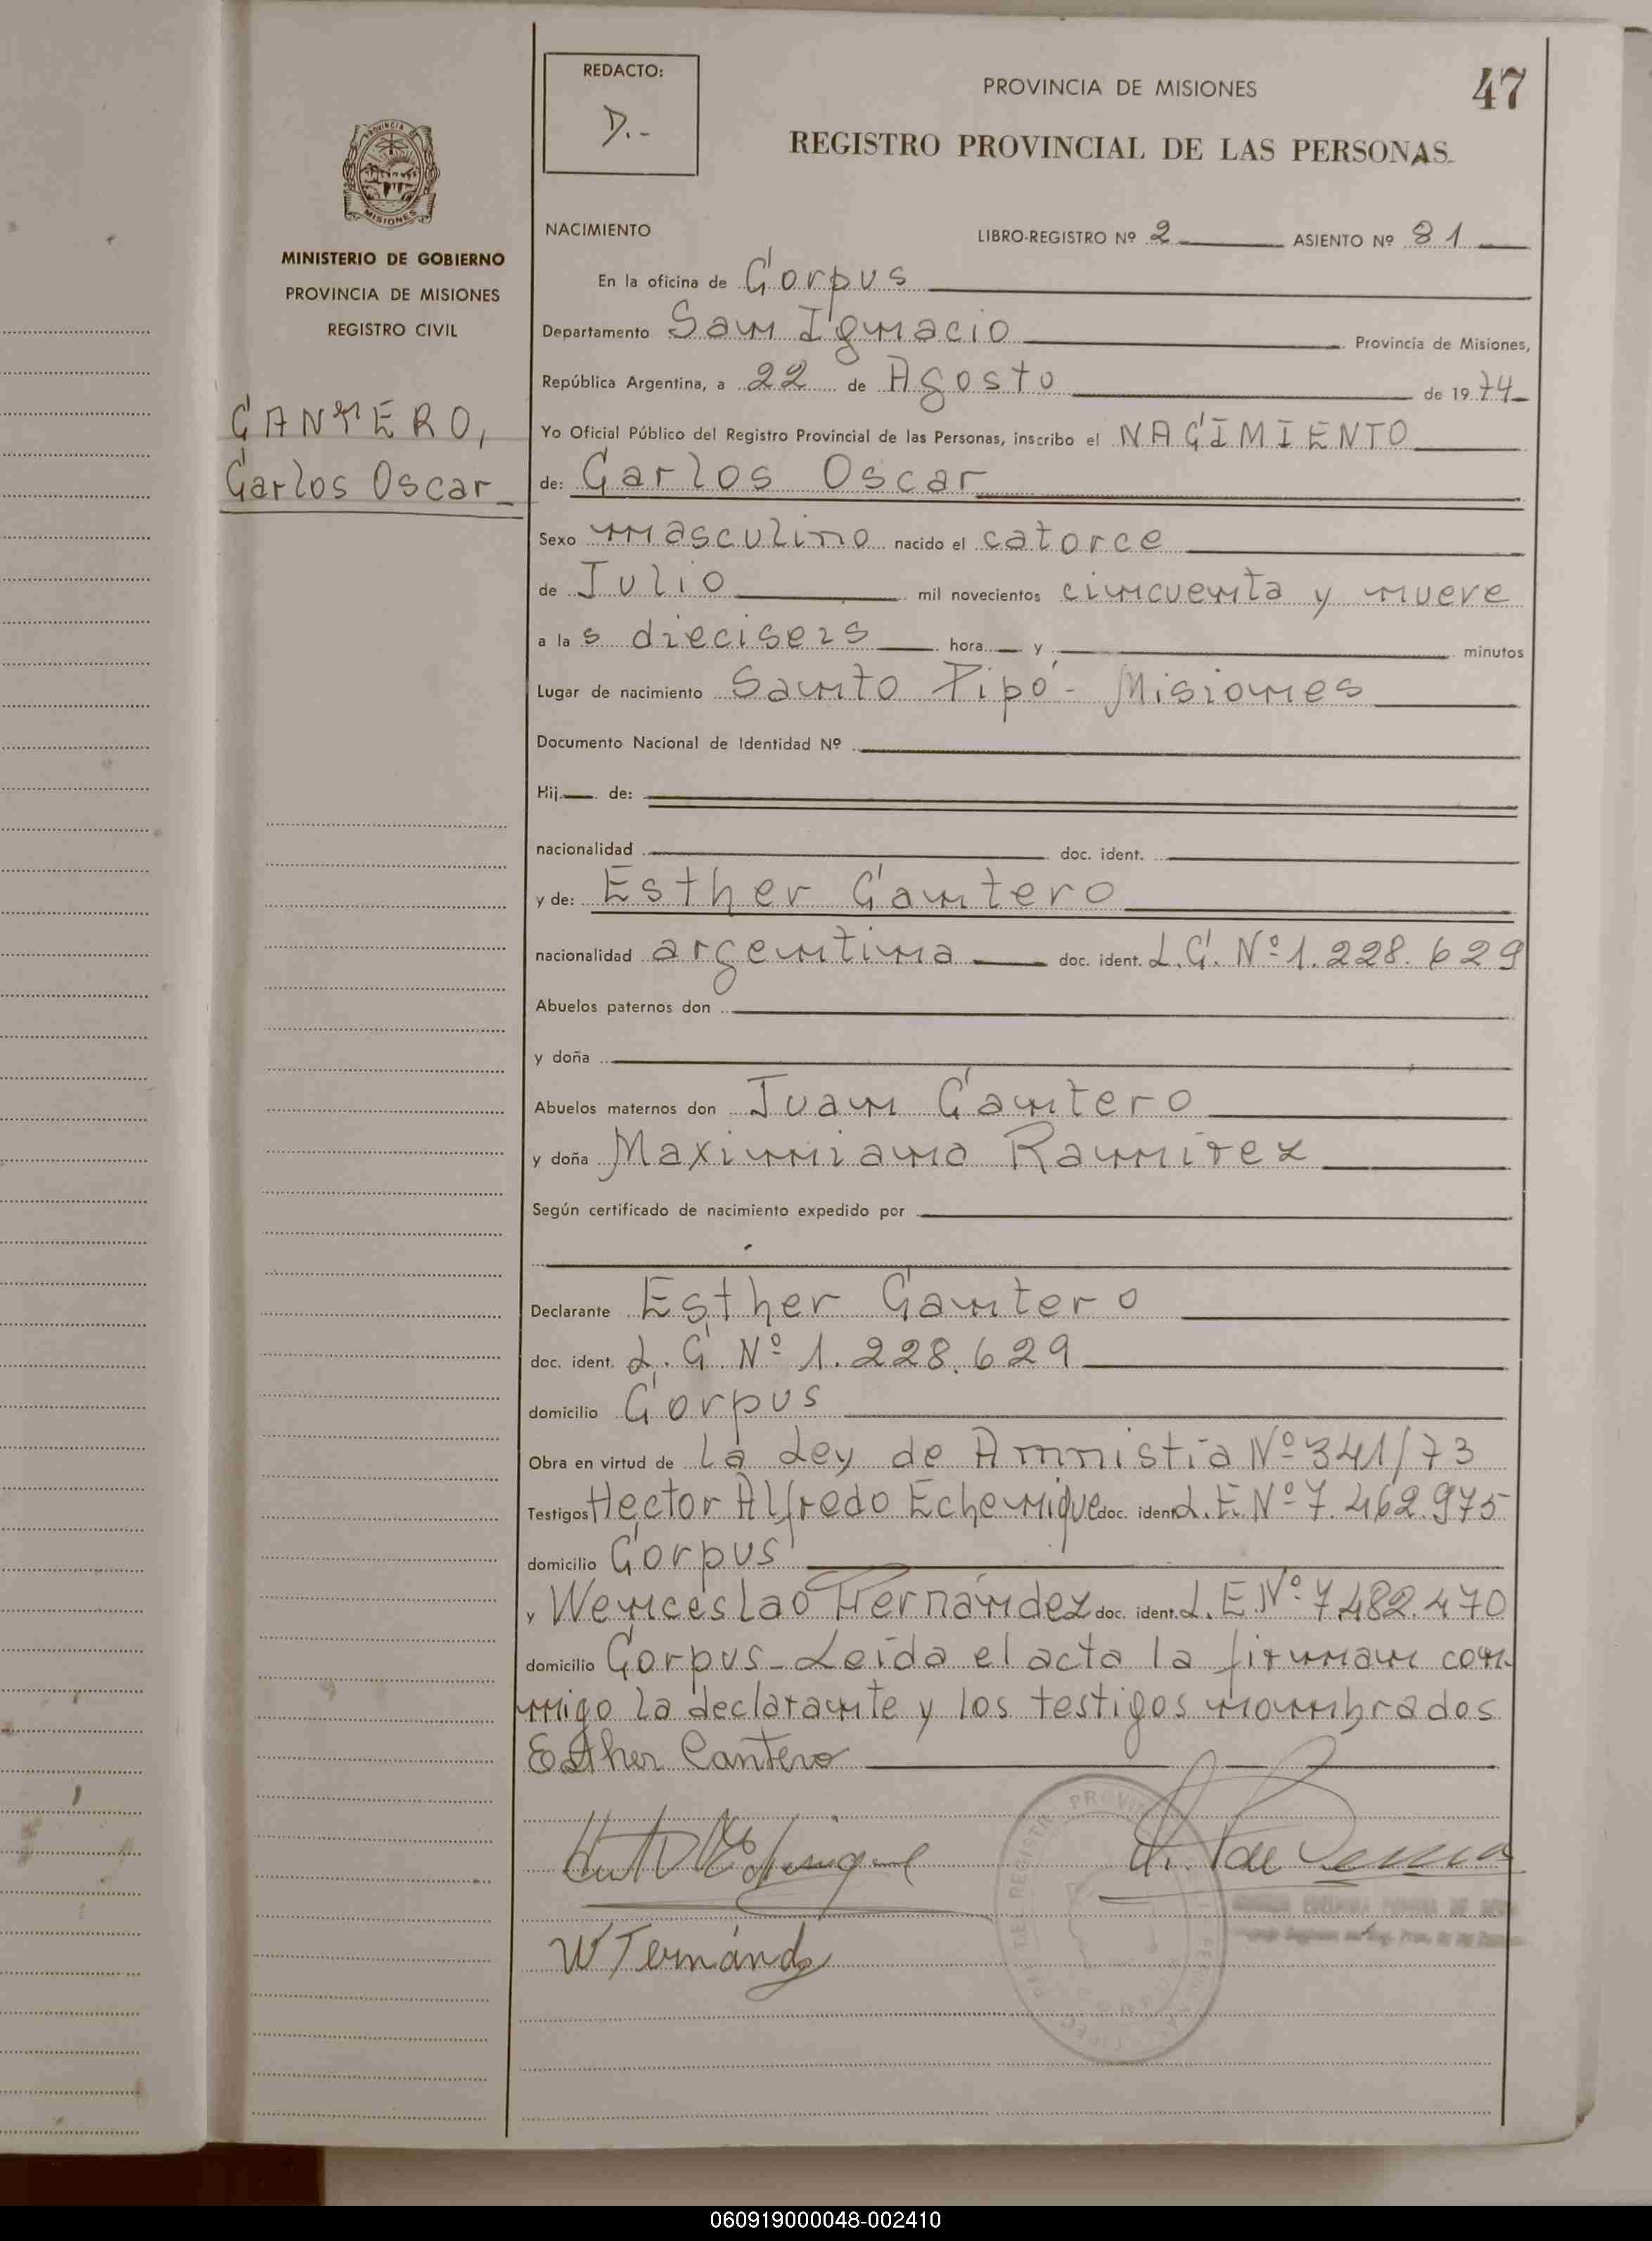 REDACTO:
D.-
PROVINCIA DE MISIONES
47
REGISTRO PROVINCIAL DE LAS PERSONAS
PROVINCIA DE
MISIONES
MINISTERIO DE GOBIERNO
PROVINCIA DE MISIONES
REGISTRO CIVIL
CANTERO,
Carlos Oscar
NACIMIENTO
LIBRO-REGISTRO Nº 2 ASIENTO Nº 81
En la oficina de Corpus
Departamento San Ignacio Provincia de Misiones,
República Argentina, a 22 de Agosto de 1974
Yo Oficial Público del Registro Provincial de las Personas, inscribo el NACIMIENTO
de: Carlos Oscar
Sexo masculino nacido el catorce
de Julio mil novecientos cincuenta y nueve
a las dieciseis hora y minutos
Lugar de nacimiento Santo Pipó - Misiones
Documento Nacional de Identidad Nº
Hij de:
nacionalidad doc. ident.
y de: Esther Cantero
nacionalidad argentina doc. ident. L.C. Nº 1.228.629
Abuelos paternos don
y doña
Abuelos maternos don Juan Cantero
y doña Maximiana Ramirez
Según certificado de nacimiento expedido por
Declarante Esther Cantero
doc. ident. L.C. Nº 1.228.629
domicilio Corpus
Obra en virtud de la Ley de Amnistía Nº 341/73
Testigos Hector Alfredo Echenique doc. ident. L.E. Nº 7.462.975
domicilio Corpus
y Wenceslao Hernández doc. ident. L.E. Nº 7.482.470
domicilio Corpus - Leída el acta la firman con
migo la declarante y los testigos nombrados
Esther Cantero